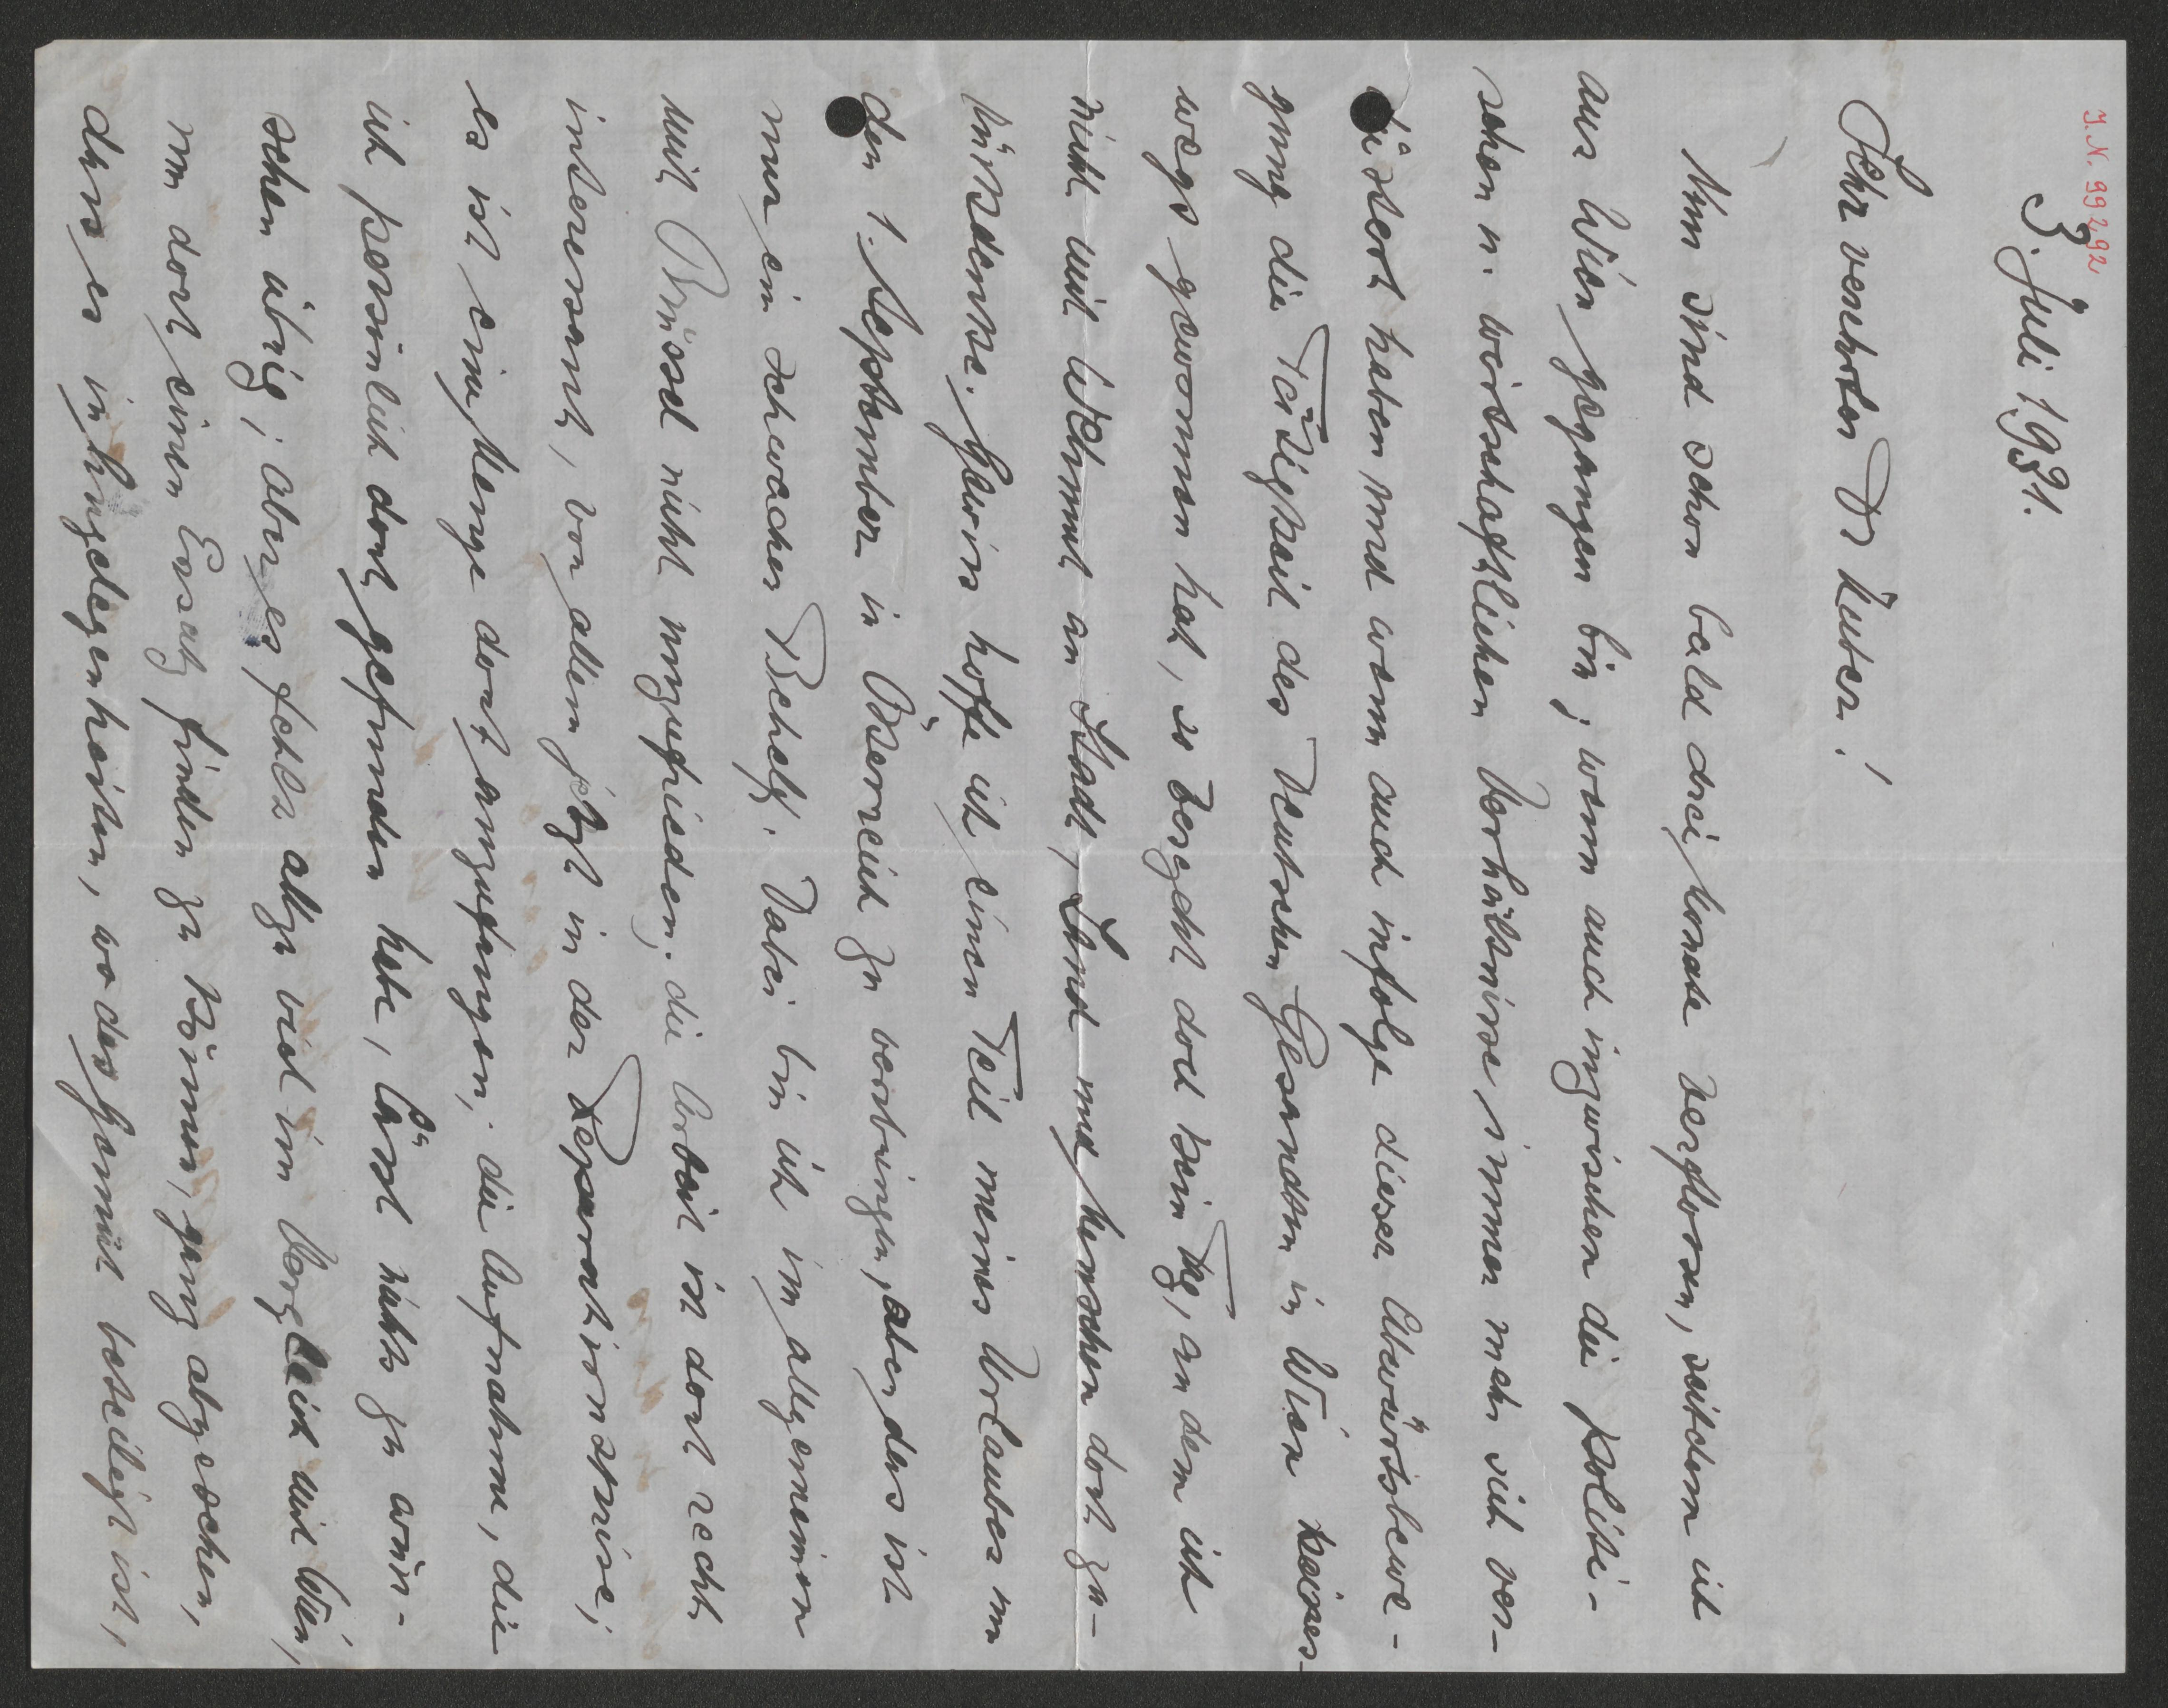 J.N. 99292
3. Juli 1931.
Sehr verehrter Dr Zuber!
Nun sind schon bald drei Monate verflossen, seitdem ich
aus Wien gegangen bin; wenn auch inzwischen die politi-
schen u. wirtschaftlichen Verhältnisse immer mehr sich ver-
düstert haben und wenn auch infolge dieser Abwärtsbewe-
gung die Tätigkeit des Deutschen Gesandten in Wien keines-
wegs gewonnen hat, so vergeht doch kein Tag, an dem ich
nicht mit Wehmut an Stadt, Land und Menschen dort zu-
rückdenke. Gewiss hoffe ich einen Teil meines Urlaubes um
den 1. September in Österreich zu verbringen, aber das ist
nur ein schwacher Behelf. Dabei bin ich im allgemeinen
mit Brüssel nicht unzufrieden; die Arbeit ist dort recht
interessant, vor allem jetzt in der Reparationskrise;
es ist eine Menge dort anzufangen; die Aufnahme, die
ich persönlich dort gefunden habe, lässt nichts zu wün-
schen übrig; aber es fehlt allzu viel im Vergleich mit Wien,
um dort einen Ersatz finden zu können, ganz abgesehen,
dass es in Angelegenheiten, wo das Gemüt beteiligt ist,